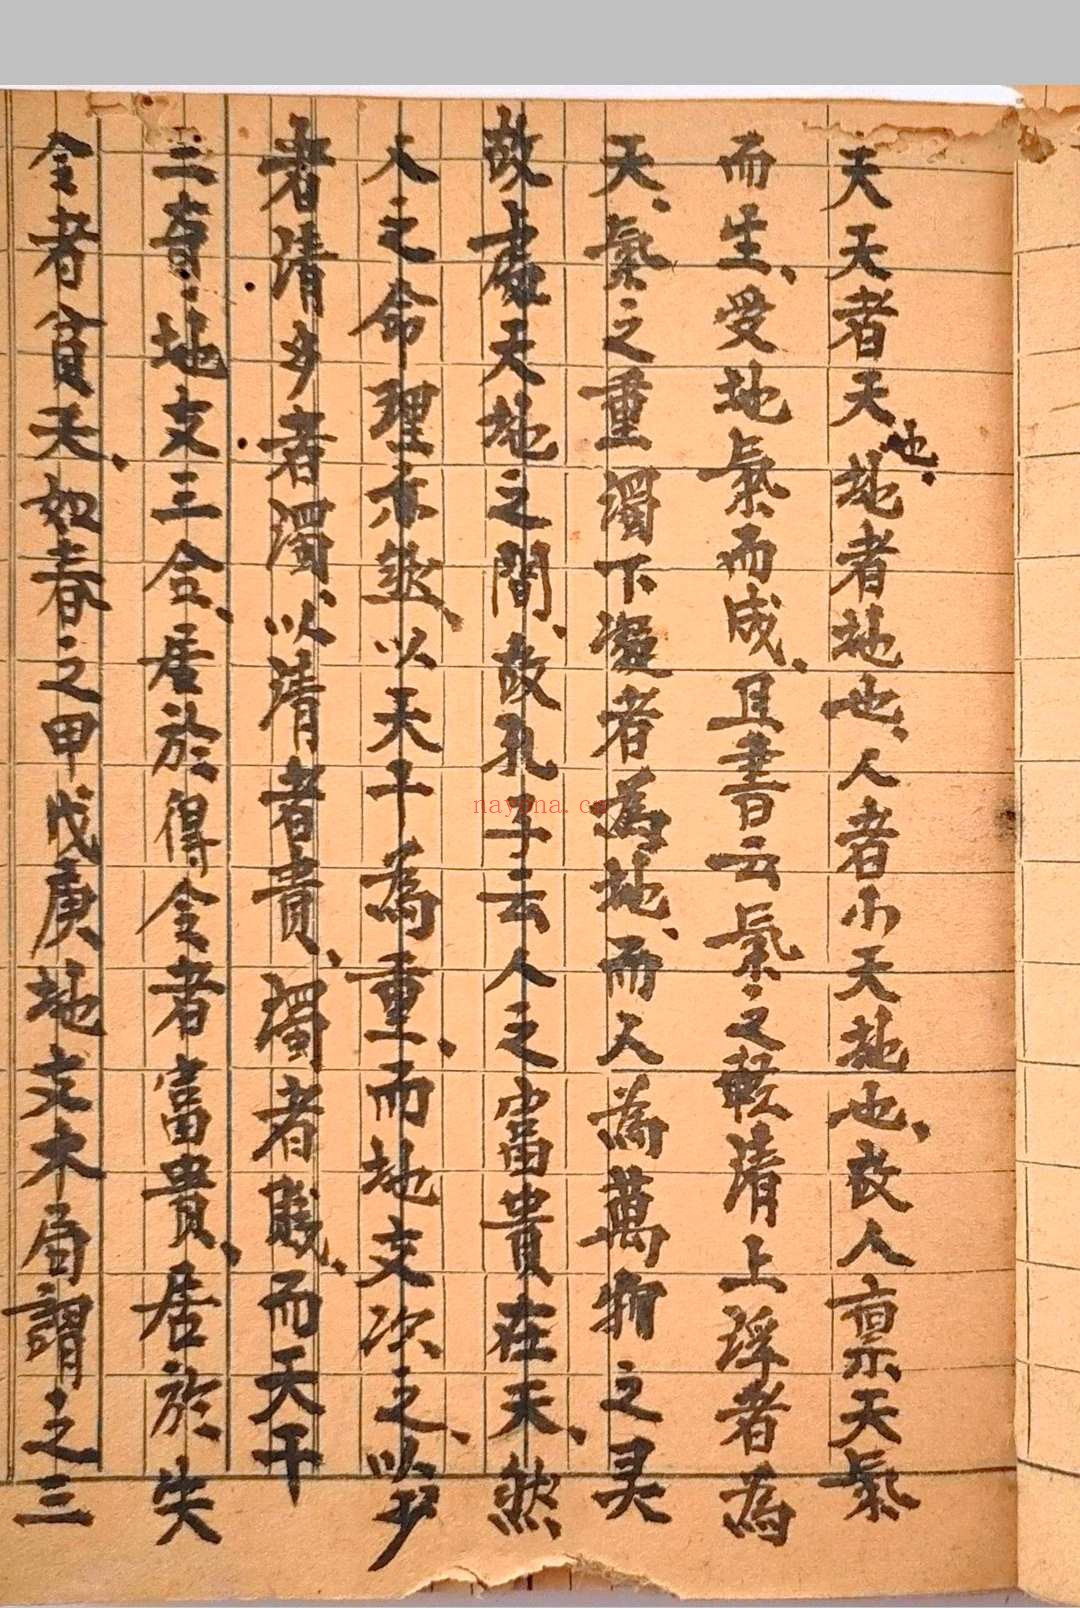 夫天者天也地者地也、人者小天地也、故人禀天氣
而生、受地氣而成、且書云氣之輕清上浮者為
天、氣之重濁下凝者為地、而人為萬物之灵
故處天地之間、故孔子云人之富貴在天、然
人之命理亦然、以天干為重、而地支次之、以少
者清多者濁、以清者貴、濁者賤、而天干
三奇地支三合、居於得令者富貴、居於失
令者貧夭、如春之甲戊庚地支木局謂之三
nayona.cn